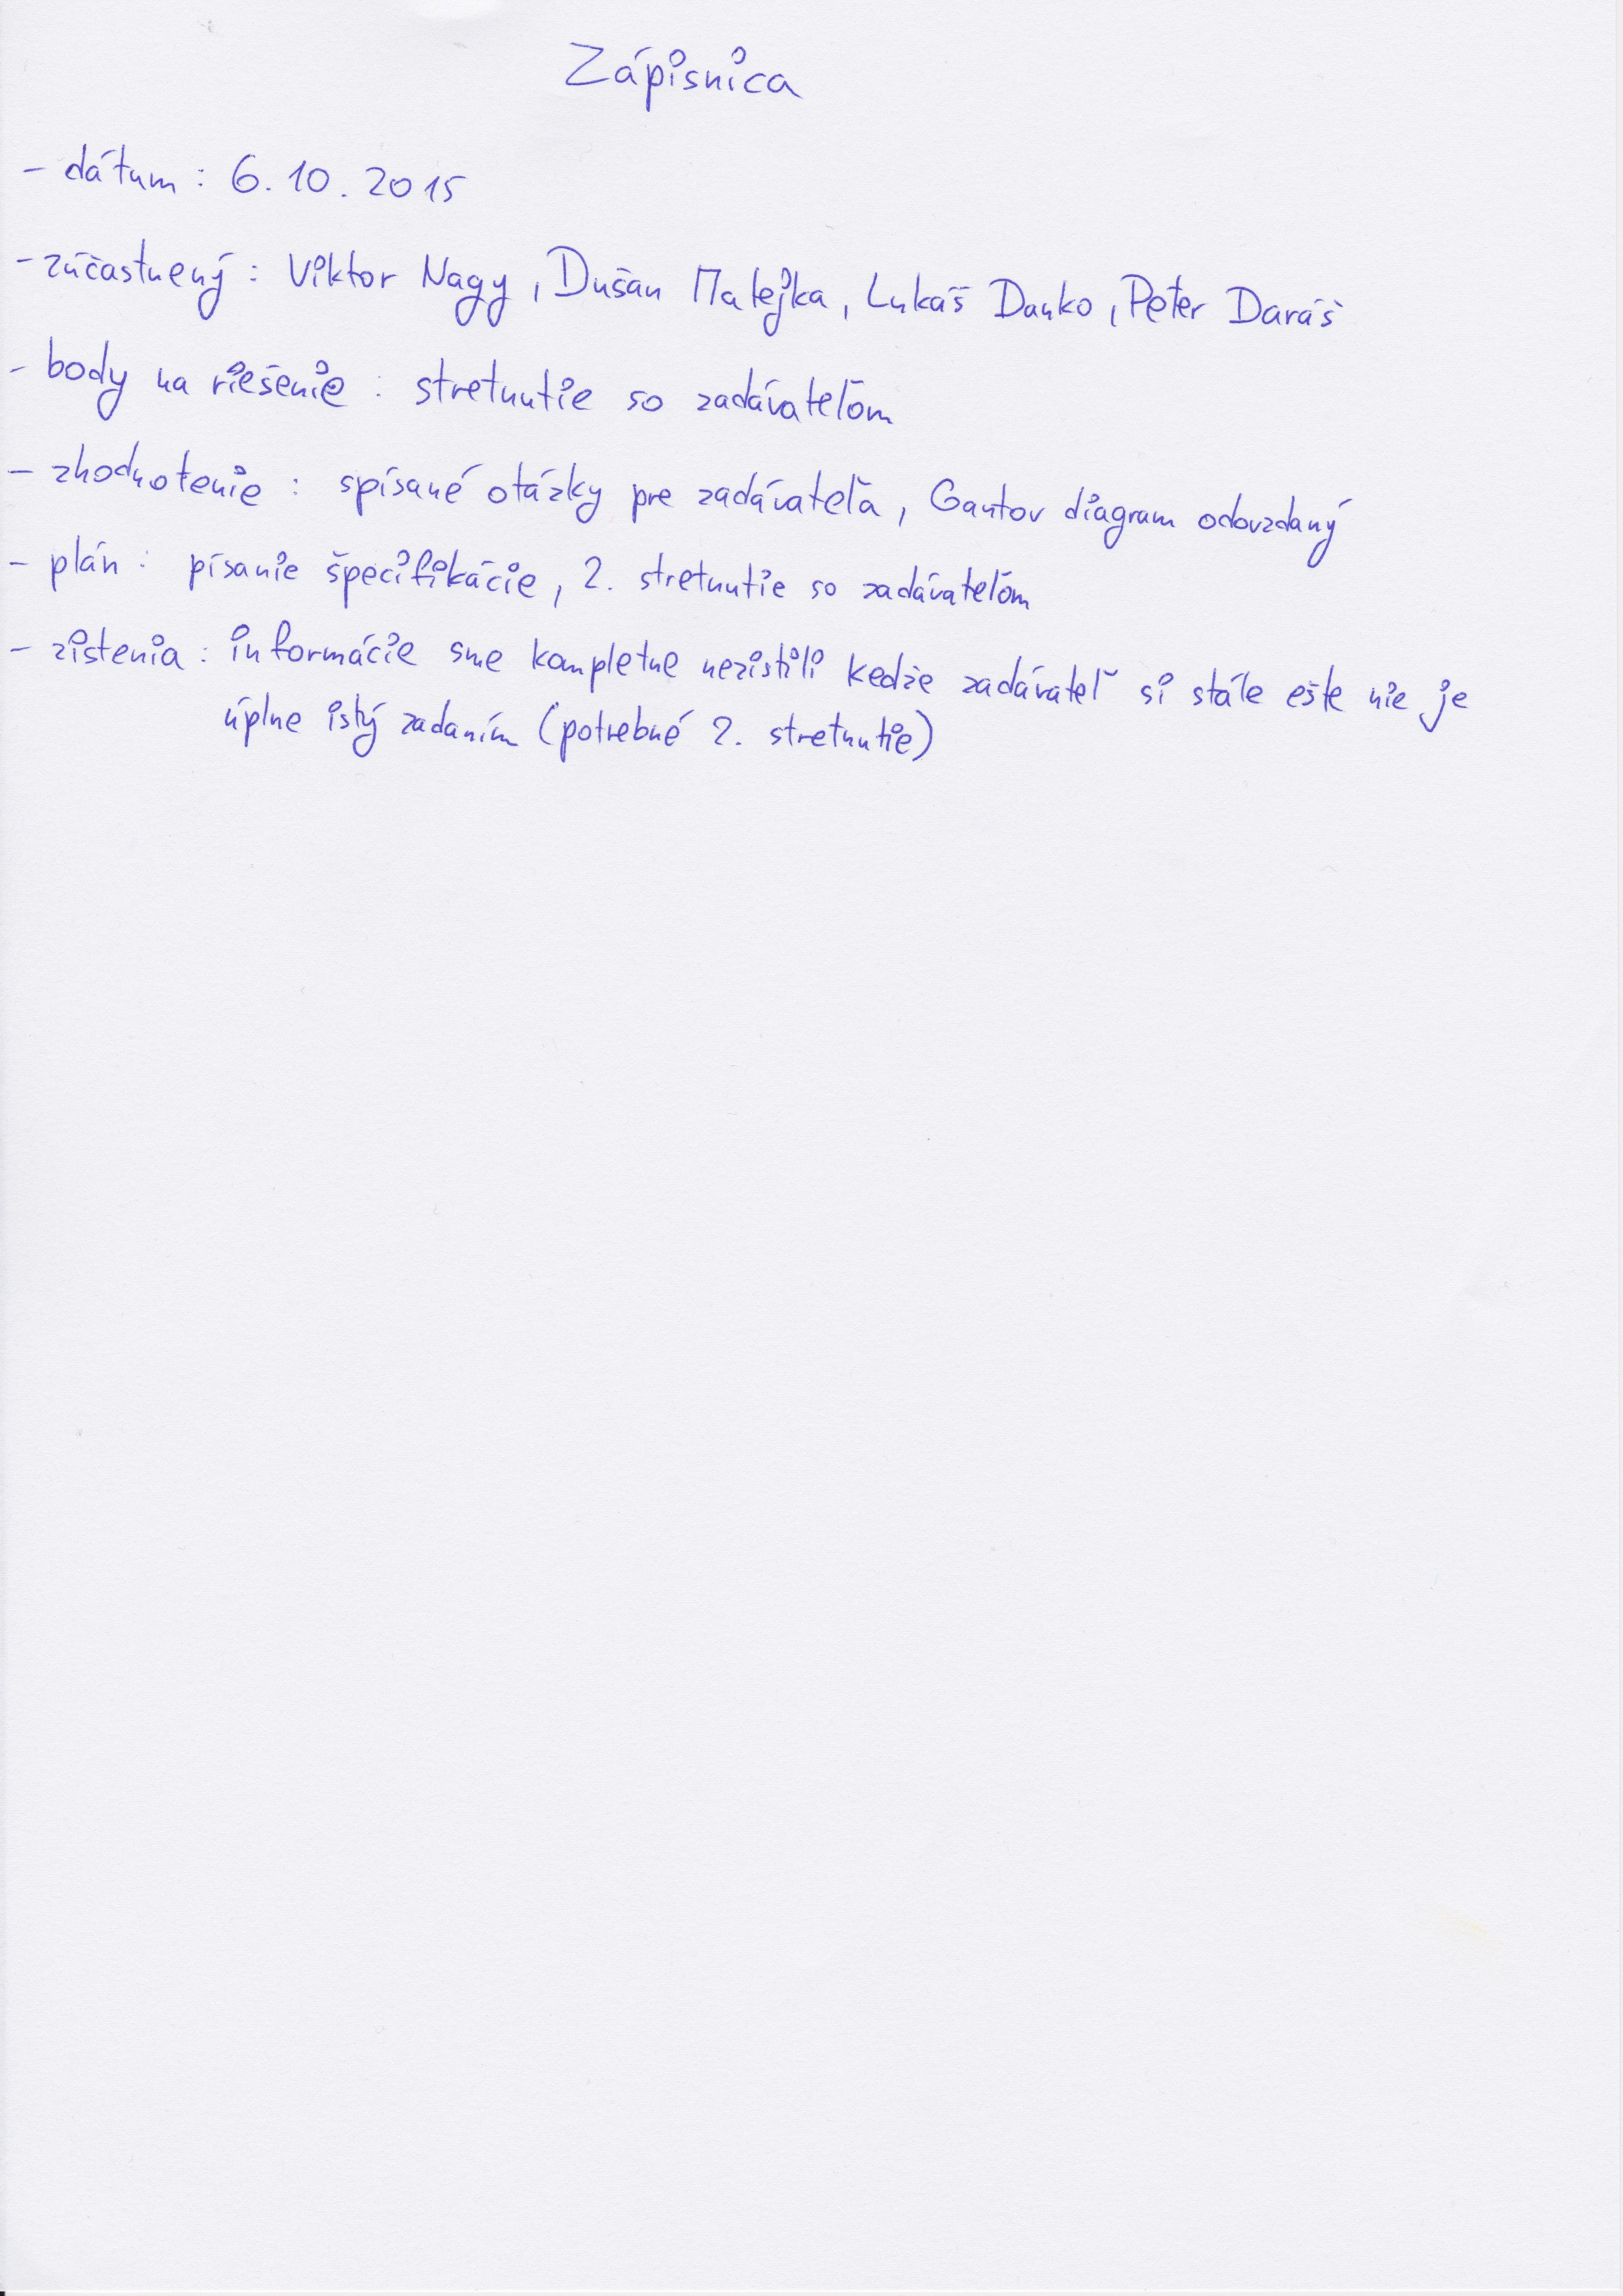 Zápisnica
- dátum : 6.10.2015
- zúčastnený : Viktor Nagy, Dušan Matejka, Lukáš Danko, Peter Daráš
- body na riešenie : stretnutie so zadávateľom
- zhodnotenie : spísané otázky pre zadávateľa, Gantov diagram odovzdaný
- plán : písanie špecifikácie, 2. stretnutie so zadávateľom
- zistenia : informácie sme kompletne nezistili kedže zadávateľ si stále ešte nie je
úplne istý zadaním (potrebné 2. stretnutie)